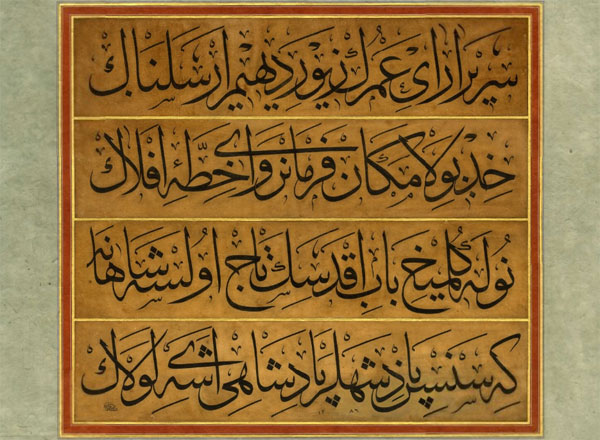 سریر ارای عمرك زیور دهیم ارسلناك
خدیو لامكان فرمانروای خطۀ افلاك
نوله كلمیخ باب اقدسك تاج اولسه شاهانه
كه سنسین پادشهلر پادشاهی ای شه لولاك